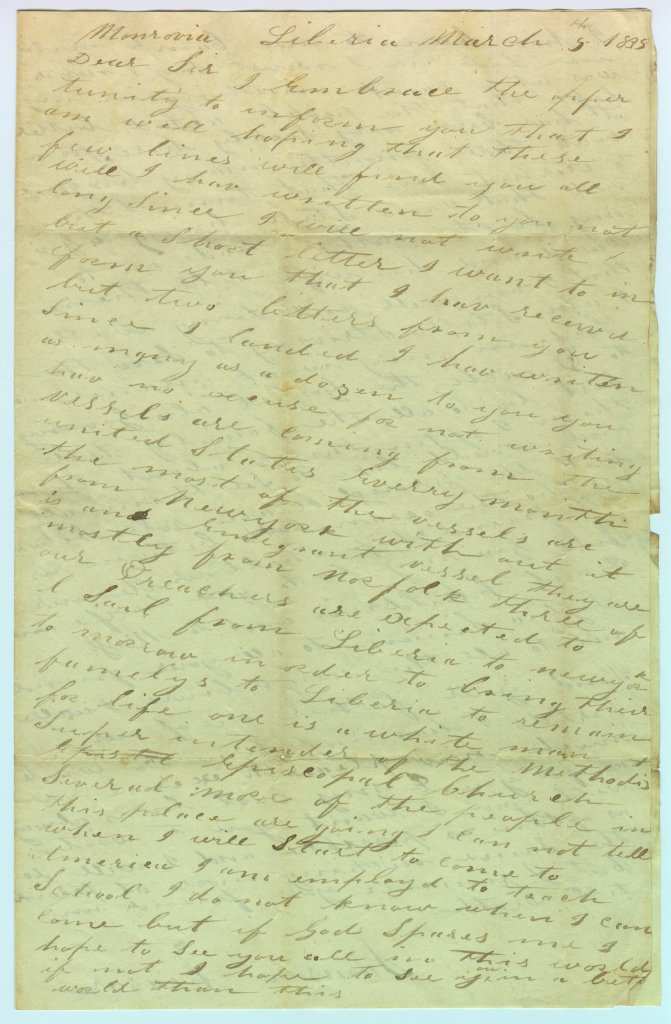 Monrovia Liberia March 5 1835
Dear Sir
I Embrace the opper
tunity to inform you that I
am well hoping that these
few lines will find you all
will I hav written to you not
long since I will not write
but a short letter I want to in
form you that I hav received
but two letters from you
since I landed I hav writen
as many as a dozen to you you
hav no excuse for not writing
vessels are coming from the
united States Everry month
the most of the vessels are
from Newyork with out it
is and Emegrant vessel they are
mostly from Norfolk three of
our Preachers are expected to
Sail from Liberia to newyork
to morrow in order to bring their
familys to Liberia to remain
for life one is a white man
Super intender of the Methodis
Episcopal Church
Several more of the people in
this place are going I can not tell
when I will Start to come to
America I am employd to teach
School I do not know when I can
come but if God Spares me I
hope to see you all in this world
if not I hope to see you in a bet
world than this